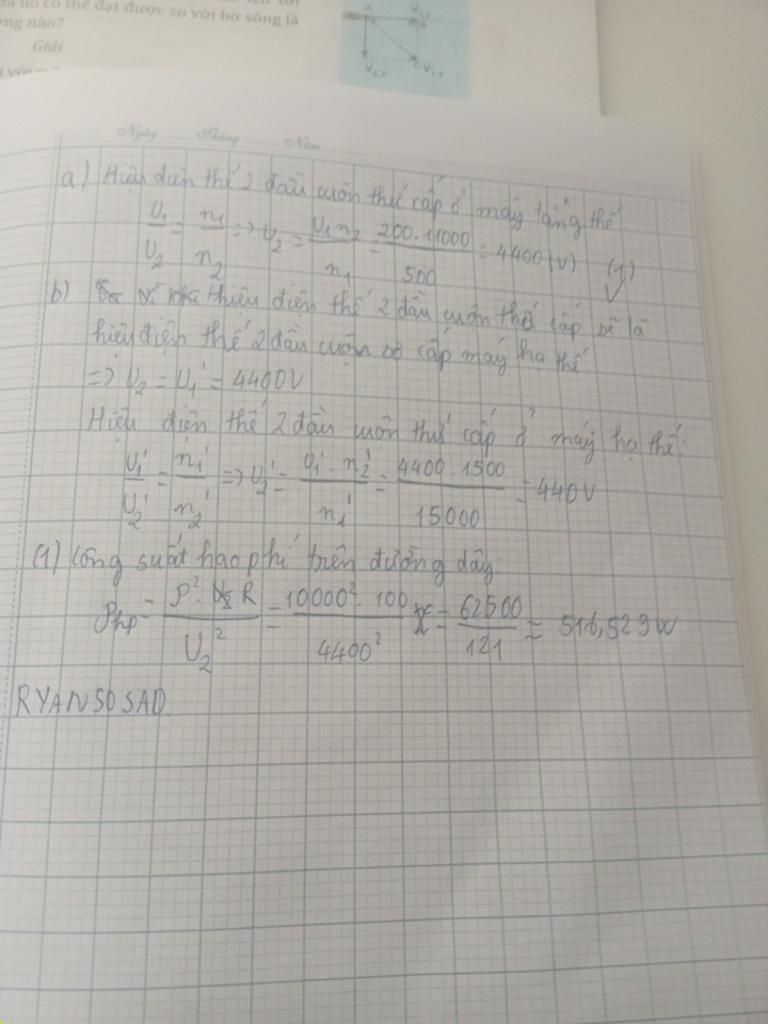 nó có thể đạt được so với bờ sông là
ng nào?
Giải
V₂,₃ V₁,₃
Ngày ........ Tháng ........ Năm ..............
a) Hiệu điện thế 2 đầu cuôn thứ cấp ở máy tăng thế
U₁/U₂ = n₁/n₂ => U₂ = U₁.n₂/n₁ = 200.11000/500 = 4400 (V) (1)
b) Hiêu điên thế 2 đầu cuôn thứ cấp sẽ là
hiệu điện thế 2 đầu cuộn sơ cấp máy hạ thế
=> U₂ = U₁' = 4400V
Hiệu điện thế 2 đầu cuôn thứ cấp ở máy hạ thế:
U₁'/U₂' = n₁'/n₂' => U₂' = U₁'.n₂'/n₁' = 4400.1500/15000 = 440V
(1) Công suất hao phí trên đường dây
Php = P².R/U₂² = 10000².100/4400² = 62500/121 = 516,529W
RYAN SO SAD.